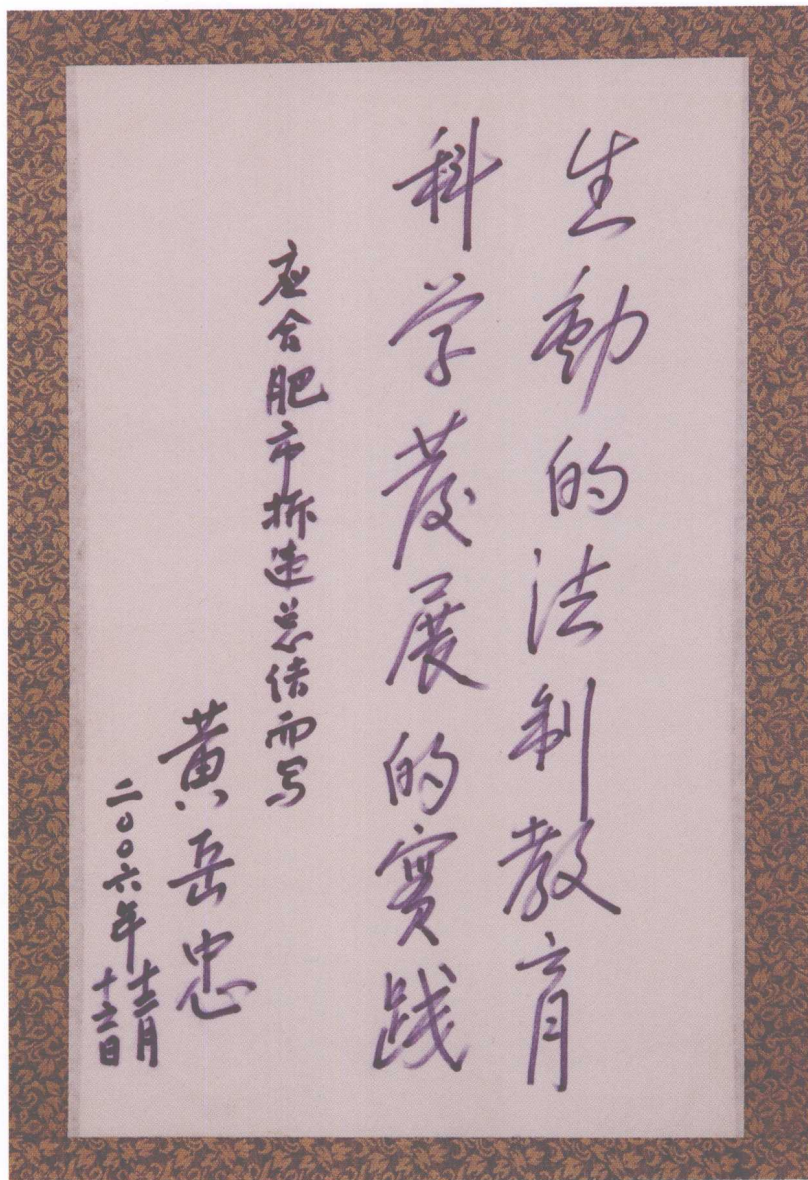 生動的法制教育
科学发展的实践
应合肥市拆违总结而写
黄岳忠
二〇〇六年
十二月
十二日